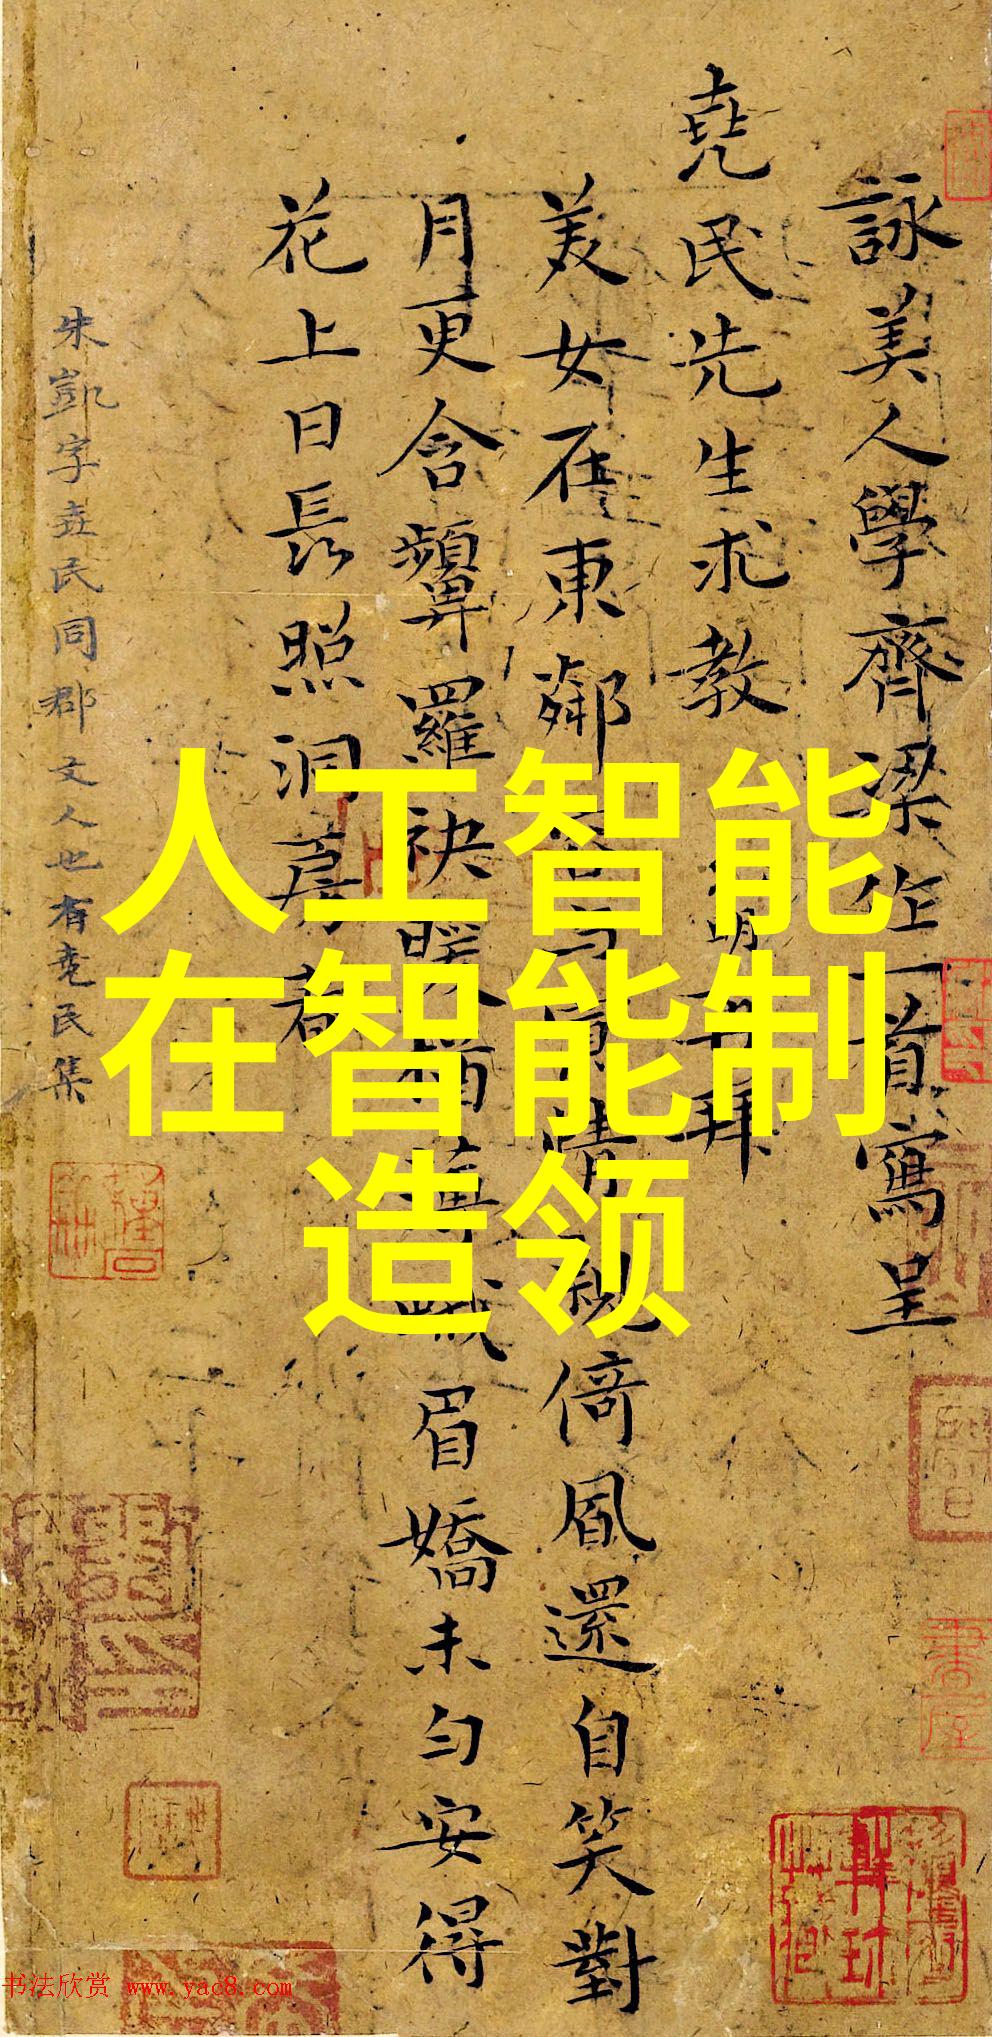 詠美人學齊梁作一首寫呈
堯民先生求教
明 拜
美女在東鄰 情 倚風還自笑對
月更含顰羅袂暖 猶薄 眉嬌未勻安得
花上日長照洞房春
朱凱字堯民同郡文人也有堯民集
人工智能
在智能制
造领
书法欣赏 www.yac8.com